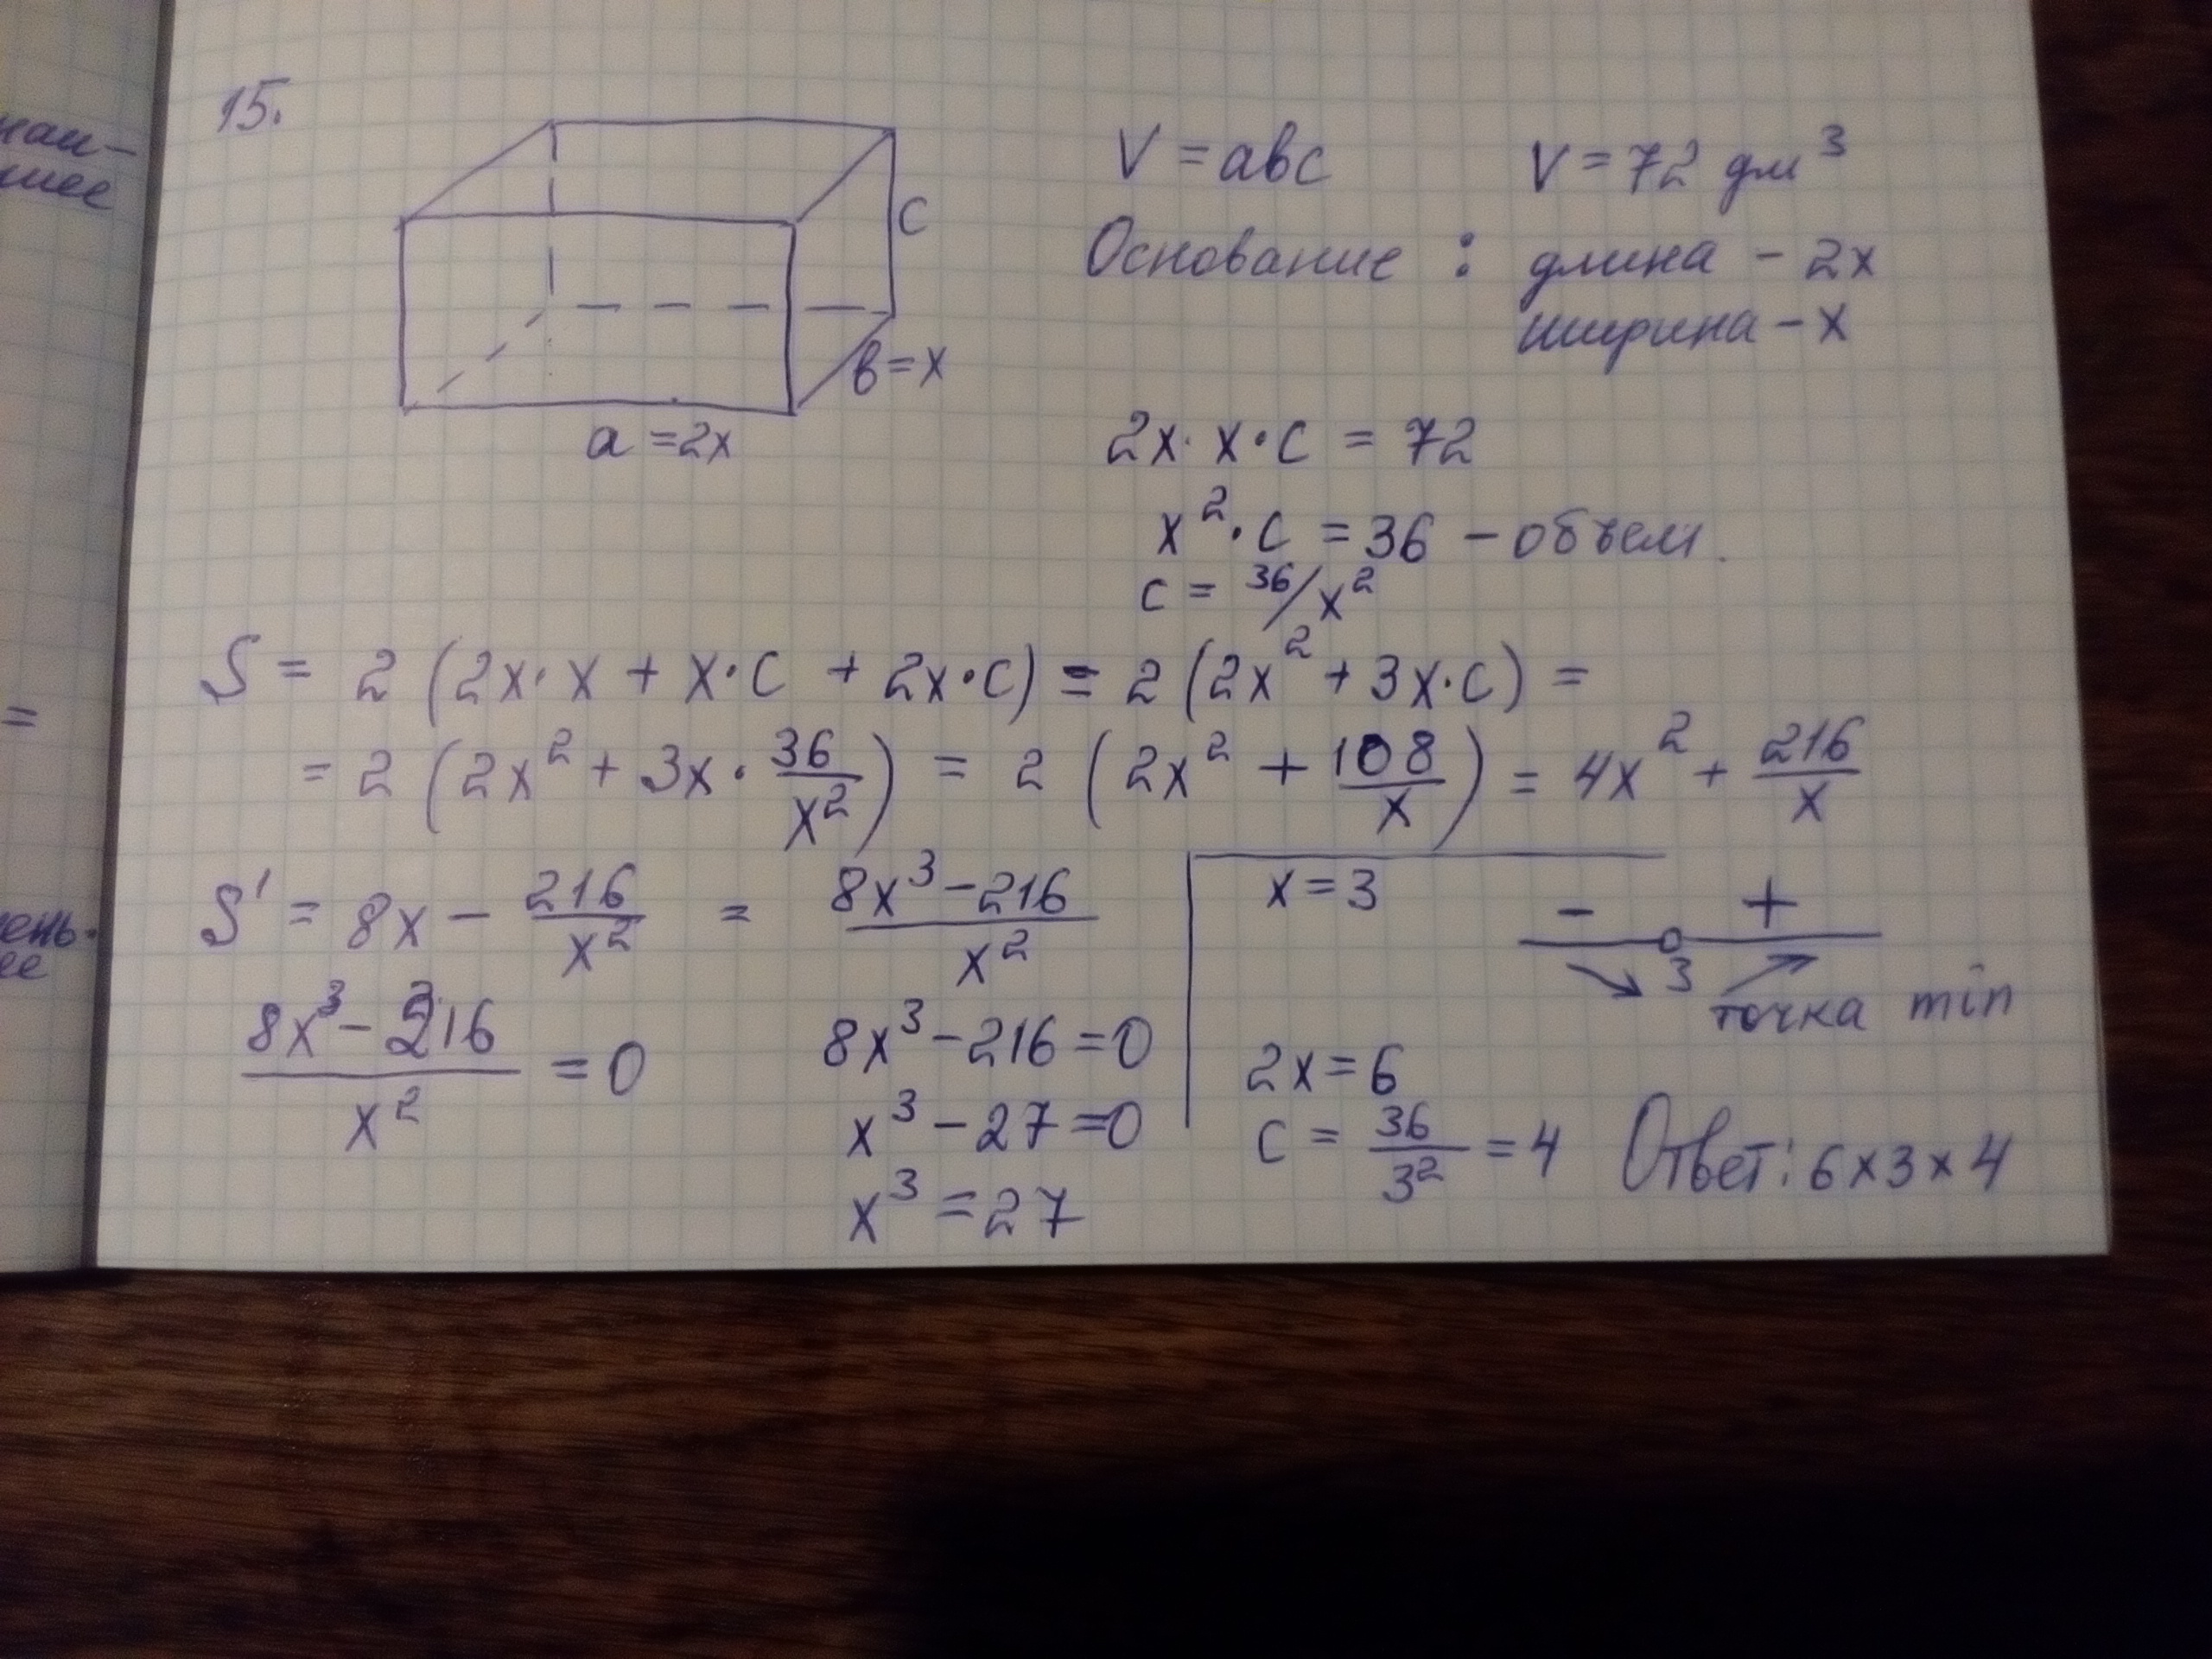 15.
V = abc V = 72 дм³
c
Основание : длина - 2x
ширина - x
b = x
a = 2x
2x · x · c = 72
x² · c = 36 - объем.
c = 36/x²
S = 2 (2x · x + x · c + 2x · c) = 2 (2x² + 3x · c) =
= 2 (2x² + 3x · 36/x²) = 2 (2x² + 108/x) = 4x² + 216/x
S' = 8x - 216/x² = (8x³ - 216)/x²
(8x³ - 216)/x² = 0
8x³ - 216 = 0
x³ - 27 = 0
x³ = 27
x = 3
- +
3
точка min
2x = 6
c = 36/3² = 4 Ответ: 6 x 3 x 4
=